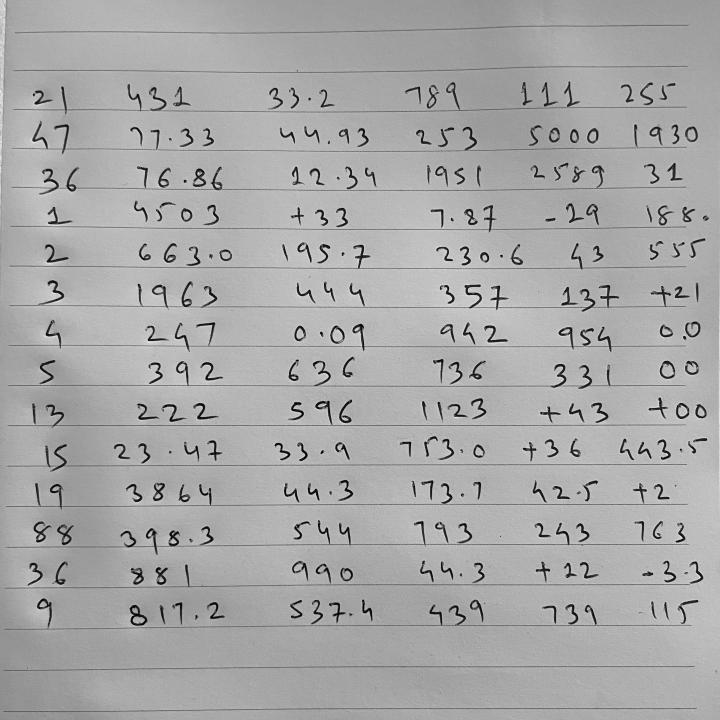 21 431 33.2 789 111 255
47 77.33 44.93 253 5000 1930
36 76.86 12.34 1951 2589 31
1 4503 +33 7.87 -29 188.
2 663.0 195.7 230.6 43 555
3 1963 444 357 137 +21
4 247 0.09 942 954 0.0
5 392 636 736 331 00
13 222 596 1123 +43 +00
15 23.47 33.9 753.0 +36 443.5
19 3864 44.3 173.7 42.5 +2
88 398.3 544 793 243 763
36 881 990 44.3 +22 -3.3
9 817.2 537.4 439 739 115